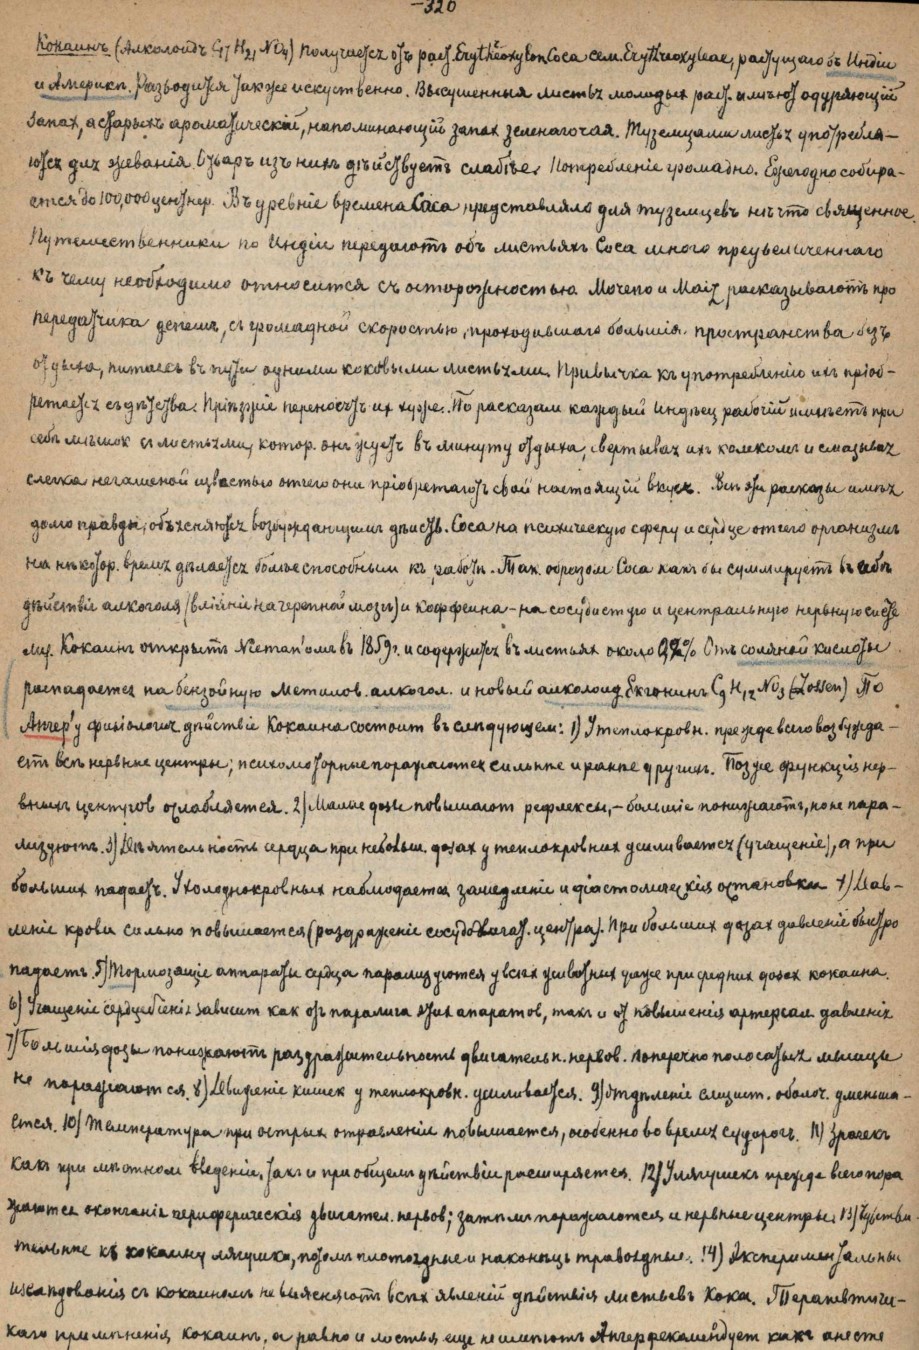 —320
Кокаинъ (Алколоидъ C17 H21 NO4) получается отъ раст. Erythroxylon Coca сем. Erythroxyleae, растущаго въ Индіи
и Америкѣ. Разводится также искуственно. Высушенныя листья молодыхъ раст. имѣютъ одуряющій
запах, а старыхъ ароматическій, напоминающій запах зеленаго чая. Туземцами листья употребля-
ются для жеванія. Отваръ изъ нихъ дѣйствуетъ слабѣе. Потребленіе громадно. Ежегодно собира-
ется до 100,000 центнер. Въ древніе времена Coca представляло для туземцевъ нѣчто священное.
Путешественники по Индіи передаютъ объ листьяхъ Coca много преувеличеннаго
къ чему необходимо относится съ осторожностью. и разсказываютъ про
передатчика депешъ, съ громадной скоростью, проходившаго большія пространства безъ
отдыха, питаясь въ пути одними коковыми листьями. Привычка къ употребленію ихъ пріоб-
ретается съ дѣтства. Пріѣзжіе переносятъ их хуже. По расказам каждый Индѣец рабочій имѣетъ при
себѣ мѣшок съ листьями, котор. онъ жуетъ въ минуту отдыха, свертывая ихъ комкомъ и смазывая
слегка негашеной известью отчего они пріобретаютъ свой настоящій вкусъ. Всѣ эти расказы имѣя
долю правды, объясняются возбуждающимъ дѣйств. Coca на психическую сферу и сердце отчего организмъ
на нѣкотор. время дѣлается болѣе способнымъ къ работѣ. Так. образом Coca какъ бы суммируетъ въ себѣ
дѣйствіе алкоголя (вліяніе на черепной мозгъ) и коффеина – на сосудистую и центральную нервную систе
му. Кокаинъ открытъ Nieman'омъ въ 1859 г. и содержится въ листьях около 0,2% Отъ соляной кислоты
распадается на бензойную метилов. алкогол. и новый алколоид Екгонинъ C9 H15 NO3 (Lossen) По
Анреп'у физіологич. дѣйствіе Кокаина состоит въ слѣдующем: 1) У теплокровн. прежде всего возбужда-
етъ всѣ нервные центры; психомоторные поражаются сильнѣе и ранѣе другихъ. Позже функція нер-
вныхъ центровъ ослабляется. 2) Малые дозы повышают рефлексы, – большіе понижаютъ, но не пара-
лизуютъ. 3) Дѣятельность сердца при небольш. дозах у теплокровных усиливается (учащеніе), а при
больших падаетъ. У холоднокровных наблюдается замедленіе и діастолическія остановки 4) Дав-
леніе крови сильно повышается (раздраженіе сосудодвигат. центра). При больших дозах давленіе быстро
падаетъ. 5) Тормозящіе аппараты сердца парализуются у всѣх животных уже при средних дозах кокаина.
6) Учащеніе сердцебіенія зависит как отъ паралича этих апаратов, такъ и от повышенія артериал. давленія
7) Большія дозы понижаютъ раздражительность двигательн. нервов. поперечно полосатыя мышцы
не поражаются. 8) Движеніе кишек у теплокровн. усиливается. 9) Отдѣленіе слизист. оболоч. уменьша-
ется. 10) Температура при острых отравленіи повышается, особенно во время судорогъ. 11) Зрачекъ
какъ при мѣстном введеніи, такъ и при общемъ дѣйствіи расширяется. 12) У лягушекъ прежде всего пора
жаются окончанія периферическія двигател. нервов; затѣмъ поражаются и нервные центры. 13) Чувстви-
тельнѣе къ кокаину лягушка, потомъ плотоядные и наконецъ травоядные. 14) Экспериментальные
изследованія съ кокаиномъ не выясняютъ всѣх явленій дѣйствія листьевъ Кока. Терапевтиче-
каго примѣненія кокаинъ, а равно и листья еще не имѣютъ Анреп рекомендует какъ анесте